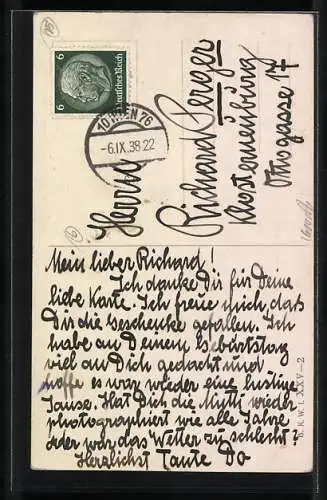 15
6
Deutsches Reich
6
10 WIEN 76
-6.IX.38 22
Herrn
Richard Perger
Klosterneuburg
Ottogasse 17
6
Mein lieber Richard!
Ich danke Dir für Deine
liebe Karte. Ich freue mich, dass
Dir die Geschenke gefallen. Ich
habe an Deinem Geburtstag
viel an Dich gedacht und
hoffe es war wieder eine lustige
Jause. Hat Dich die Mutti wieder
photographiert wie alle Jahre
oder war das Wetter zu schlecht?
Herzlichst Tante Do
B. K. W. I. XXV-2